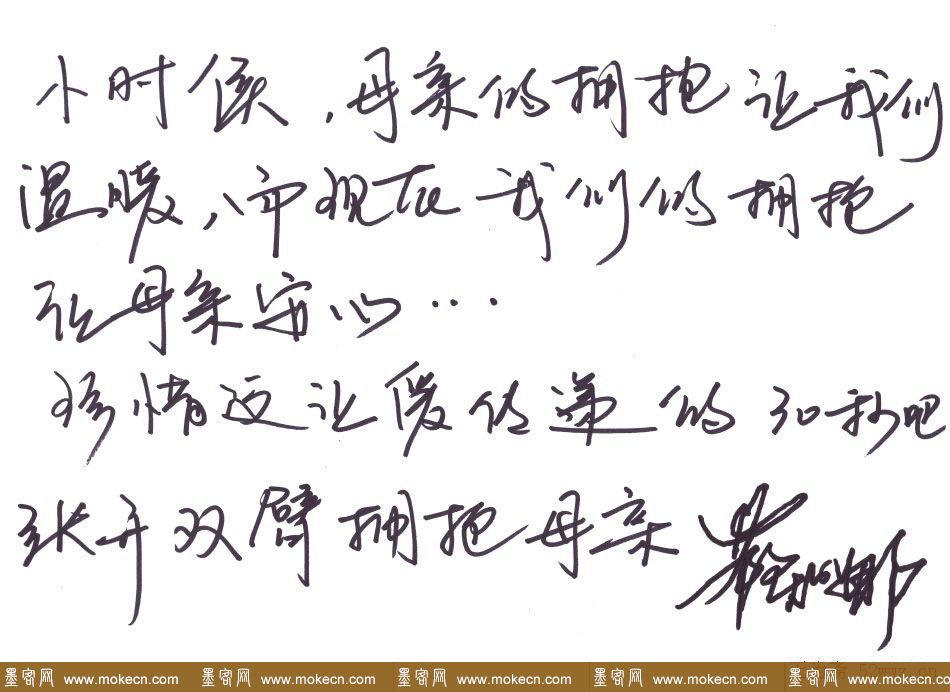 小时候,母亲的拥抱让我们
温暖,而现在我们的拥抱
让母亲安心...
珍惜这让爱传递的30秒吧
张开双臂拥抱母亲
墨客网 www.mokecn.com 墨客网 www.mokecn.com 墨客网 www.mokecn.com 墨客网 www.mokecn.com